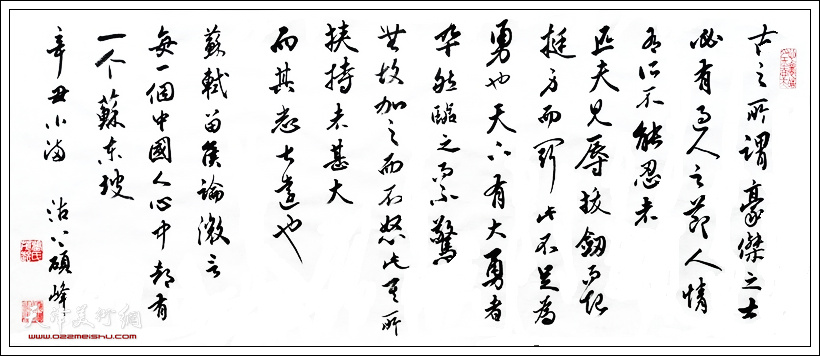 古之所谓豪傑之士
必有过人之节人情
有所不能忍者
匹夫見辱拔劔而起
挺身而鬥此不足为
勇也天下有大勇者
卒然臨之而不驚
無故加之而不怒此其所
挾持者甚大
而其志甚遠也
蘇軾留侯論激言
每一個中國人心中都有
一个蘇东坡
辛丑小满 沽上碩峰
天津美术網
www.022meishu.com